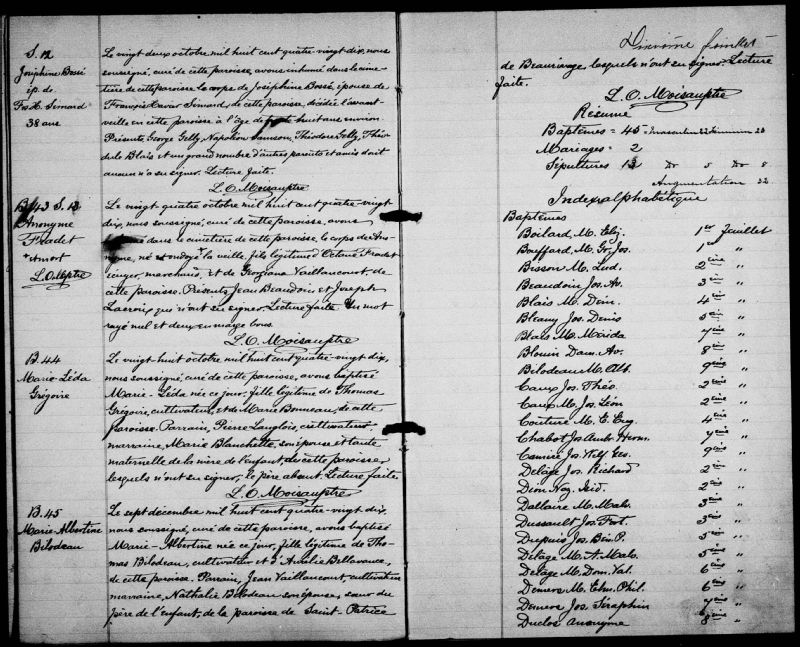 S. 12
Joséphine Bossé
ép. de
Frs X. Simard
38 ans
Le vingt deux octobre mil huit cent quatre-vingt dix, nous
soussigné, curé de cette paroisse, avons inhumé dans le cime-
tière de cette paroisse le corps de Joséphine Bossé, épouse de
François Xavier Simard, de cette paroisse, décédée l'avant
veille en cette paroisse à l'âge de trente huit ans environ.
Présents, George Gelly, Napoléon Samson, Théodore Gelly, Théo-
dule Blais et un grand nombre d'autres parents et amis dont
aucun n'a su signer. Lecture faite.
L. O. Moisan ptre
B. 43 S. 13
Anonyme
Fradet
+ Amort
L. O. M ptre
Le vingt-quatre octobre mil huit cent quatre-vingt
dix, nous soussigné, curé de cette paroisse, avons
dans le cimetière de cette paroisse, le corps de Ano-
nyme, né et ondoyé la veille, fils légitime d'Octave Fradet
marchand, et de Georgiana Vaillancourt de
cette paroisse. Présents Jean Beaudoin et Joseph
Lacroix qui n'ont su signer. Lecture faite. Un mot
rayé nul et deux en marge bons.
L. O. Moisan ptre
B. 44
Marie-Léda
Grégoire
Le vingt-huit octobre mil huit cent quatre-vingt dix,
nous soussigné, curé de cette paroisse, avons baptisé
Marie-Léda née ce jour, fille légitime de Thomas
Grégoire, cultivateur, et de Marie Bonneau, de cette
paroisse. Parrain, Pierre Langlois, cultivateur,
marraine, Marie Blanchette, son épouse et tante
maternelle de la mère de l'enfant, de cette paroisse,
lesquels n'ont su signer, le père absent. Lecture faite.
L. O. Moisan ptre
B. 45
Marie-Albertine
Bilodeau
Le sept décembre mil huit cent quatre-vingt dix,
nous soussigné, curé de cette paroisse, avons baptisé
Marie-Albertine née ce jour, fille légitime de Tho-
mas Bilodeau, cultivateur et d'Aurélie Bellavance,
de cette paroisse. Parrain, Jean Vaillancourt, cultivateur
marraine, Nathalie Bilodeau son épouse, sœur du
père de l'enfant, de la paroisse de Saint-Patrice
feuillet
de Beaurivage, lesquels n'ont su signer. Lecture
faite.
L. O. Moisan ptre
Résumé
Baptêmes = 45 = masculin 22 féminin 23
Mariages = 2
Sépultures 13 Do 5 Do 8
Augmentation 32
Index alphabétique
Baptêmes
Boilard M. Eliz. 1er feuillet
Bouffard M. Gr. Jos. 1er "
Bisson M. Lud. 2ème "
Beaudoin Jos. Av. 3ème "
Blais M. Dein. 4ème "
Bleany Jos. Denis 5ème "
Blais M. Mérida 7ème "
Blouin Dam. Av. 8ème "
Bilodeau M. Alb. 9ème "
Caux Jos. Théo. 2ème "
Caux M. Jos. Léon 2ème "
Couture M. E. Eug. 4ème "
Chabot Jos. Aub. Herm. 7ème "
Jos. Wilf. Geo. 9ème "
Delage Jos. Richard 2ème "
Dion Naz. Isid. 2ème "
Dallaire M. Malv. 3ème "
Dussault Jos. Fort. 3ème "
Dupuis Jos. Ben. P. 5ème "
Delage M. A. Malv. 5ème "
Delage M. Dom. Val. 6ème "
Demers M. Elm. Phil. 6ème "
Demers Jos. Séraphin 7ème "
Duclos Anonyme 8ème "